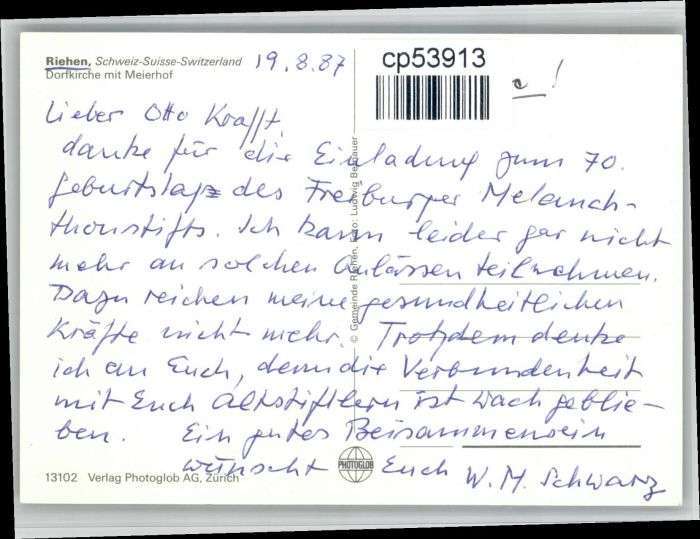 Riehen, Schweiz-Suisse-Switzerland
Dorfkirche mit Meierhof
19.8.87
cp53913
e!
Lieber Otto Krafft,
danke für die Einladung zum 70.
Geburtstage des Freiburger Melanch-
thonstifts. Ich kann leider gar nicht
mehr an solchen Anlässen teilnehmen.
Dazu reichen meine gesundheitlichen
Kräfte nicht mehr. Trotzdem denke
ich an Euch, denn die Verbundenheit
mit Euch Altstiftlern ist wach geblie-
ben. Ein gutes Beisammensein
wünscht Euch W. M. Schwarz
© Gemeinde Riehen, Foto: Ludwig
13102 Verlag Photoglob AG, Zürich
PHOTOGLOB